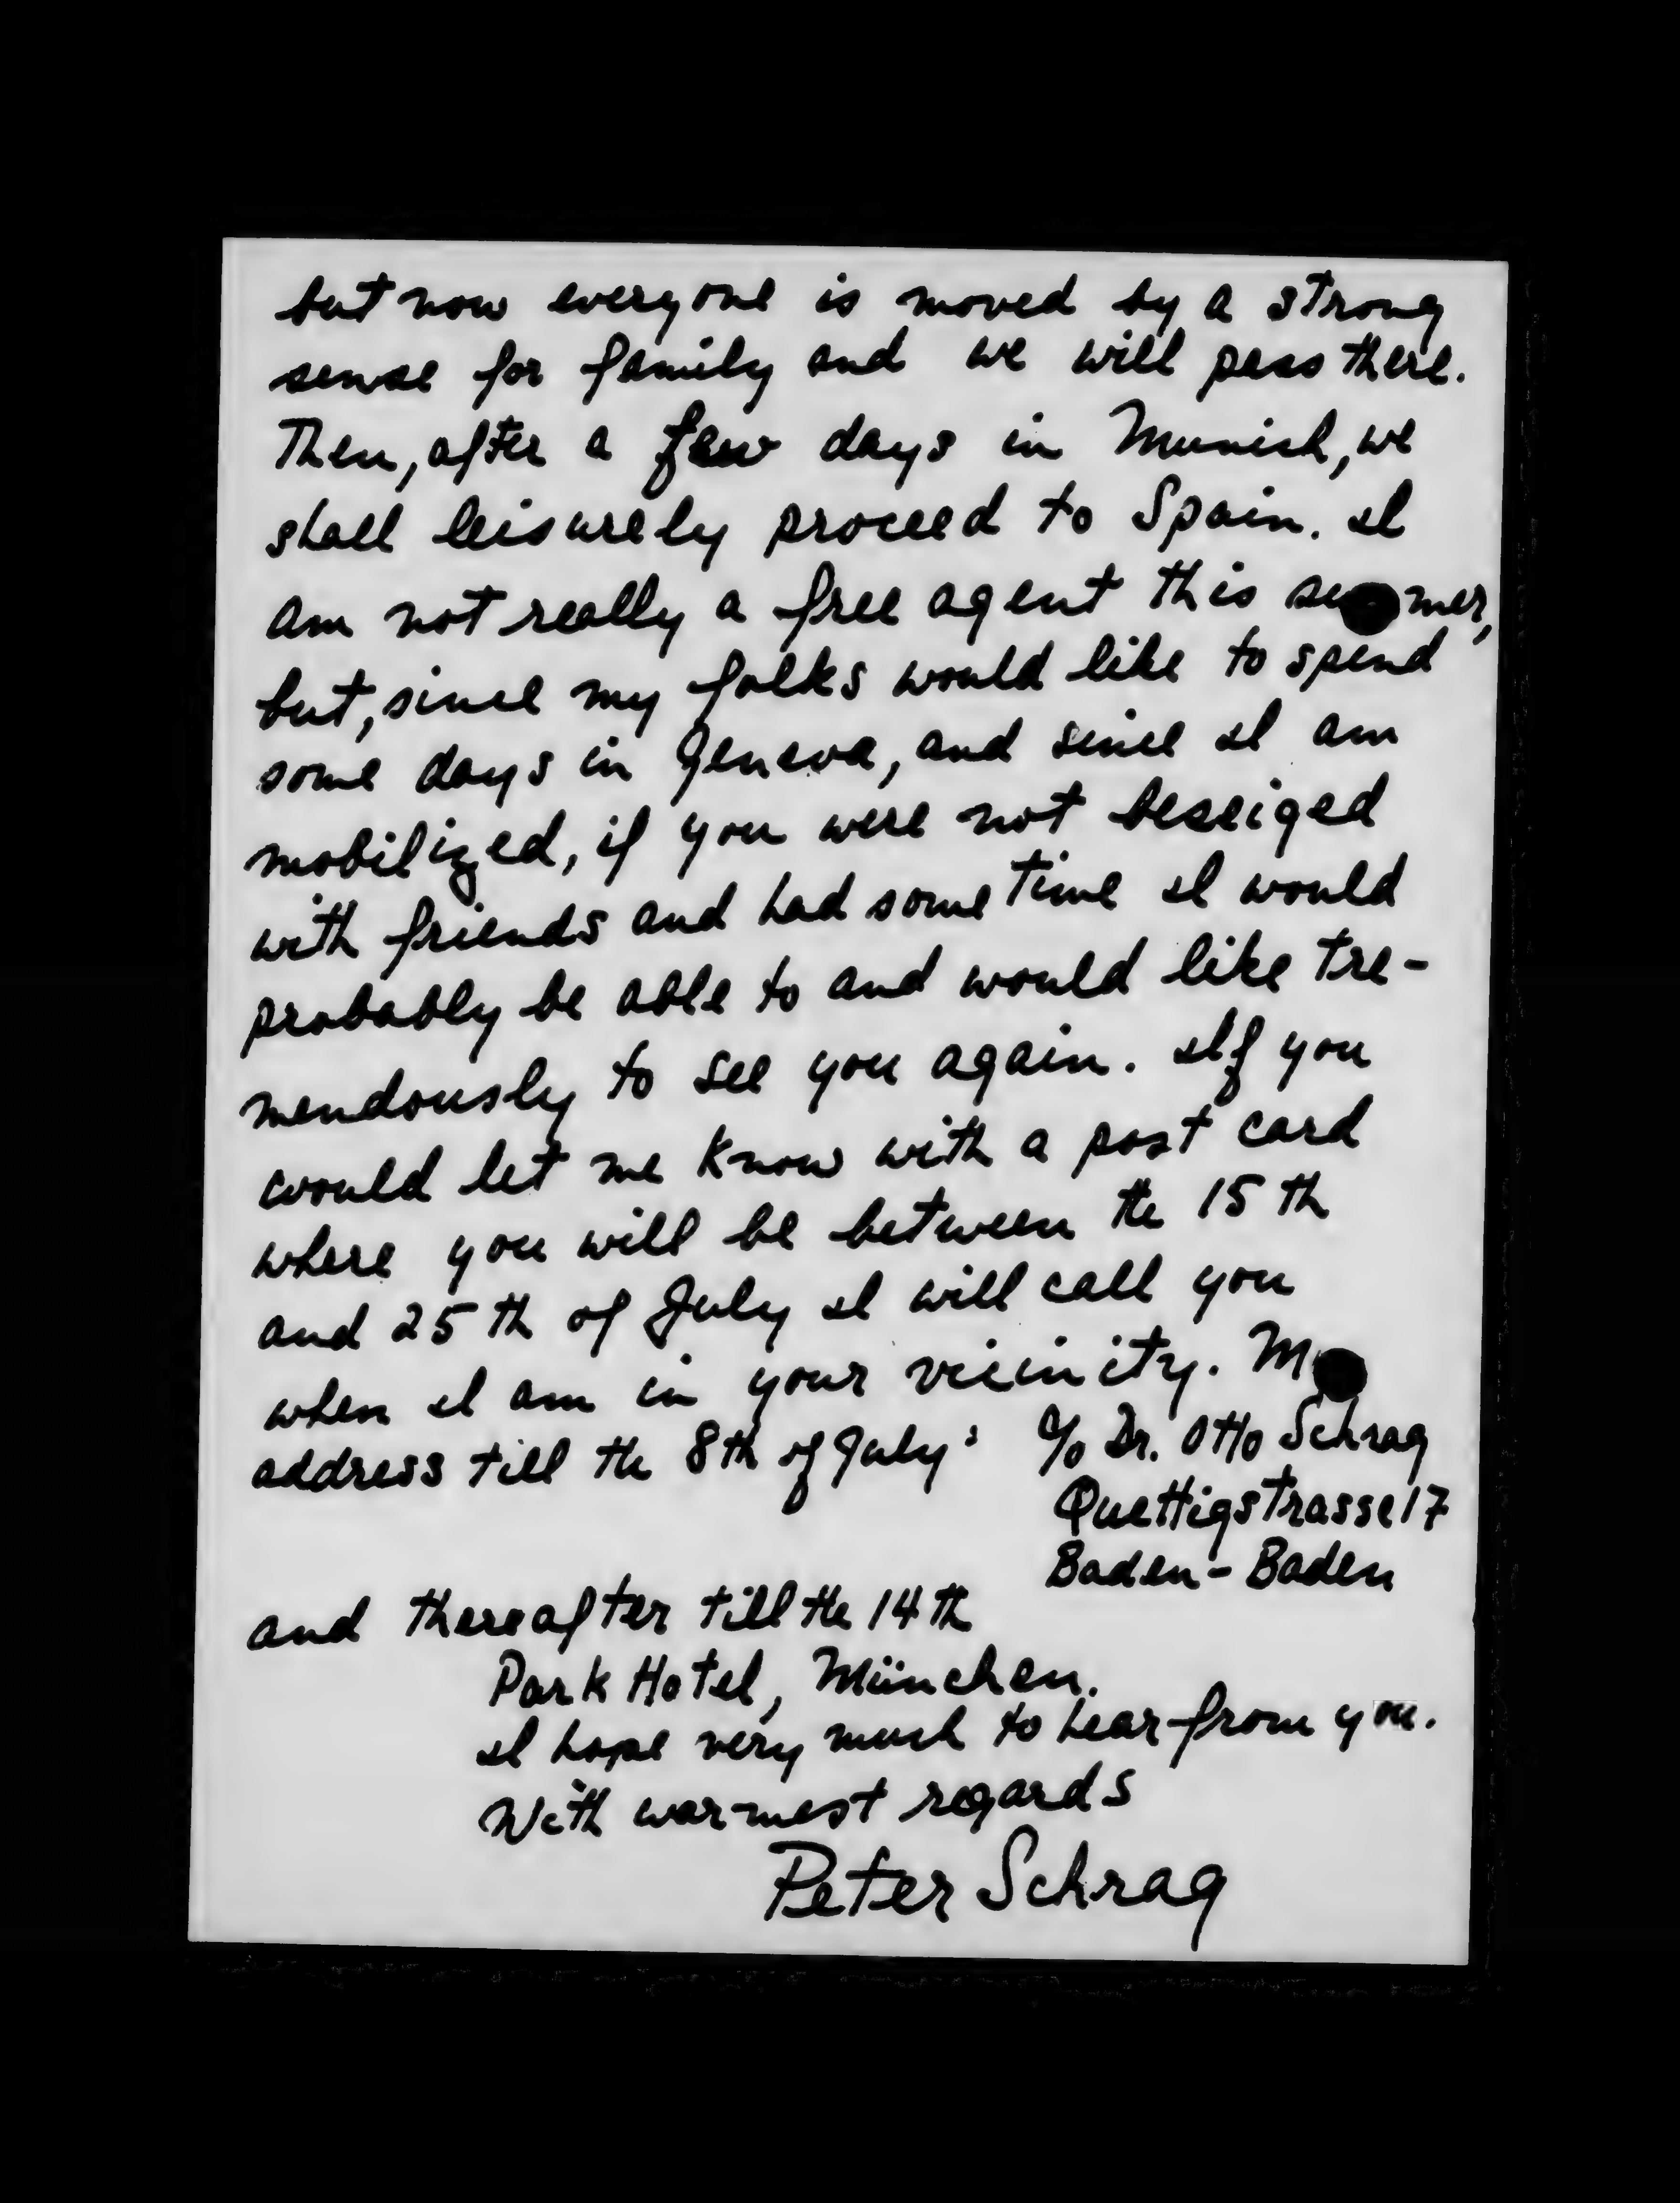 but now everyone is moved by a strong
sense for family and we will pass there.
Then, after a few days in Munich, we
shall leisurely proceed to Spain. I
am not really a free agent this su mer,
but, since my folks would like to spend
some days in Geneva, and since I am
mobilized, if you were not beseiged
with friends and had some time I would
probably be able to and would like tre-
mendously to see you again. If you
would let me know with a post card
where you will be between the 15th
and 25th of July I will call you
when I am in your vicinity. M
address till the 8th of July: c/o Dr. Otto Schrag
Quettigstrasse 17
Baden-Baden
and thereafter till the 14th
Park Hotel, München.
I hope very much to hear from you.
With warmest regards
Peter Schrag